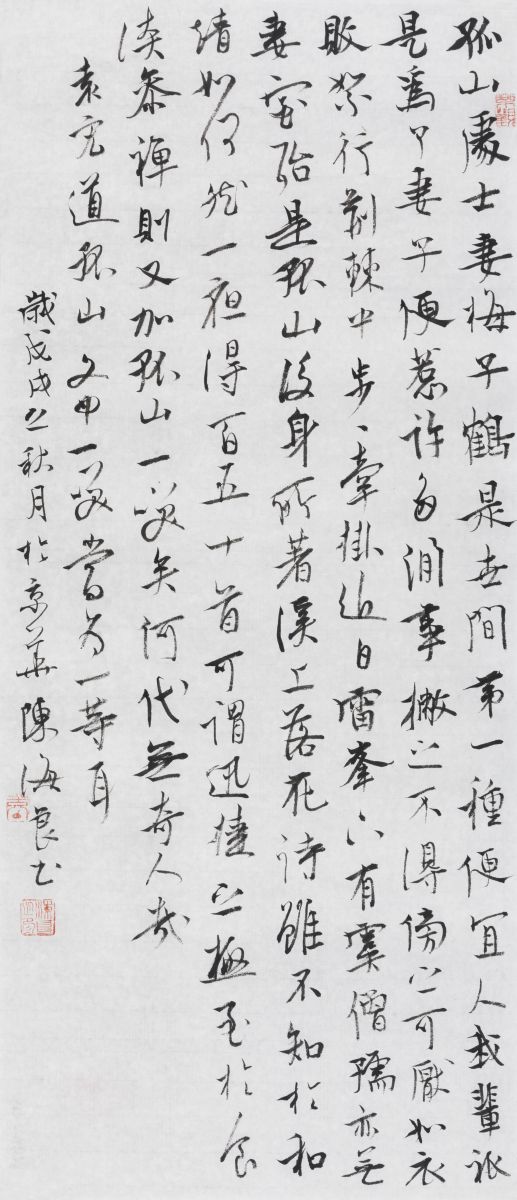 孤山處士妻梅子鶴是世間第一種便宜人我輩祇
是為了妻子便惹許多閒事撇之不得傍之可厭如衣
敗絮行荊棘中步步牽掛近日雷峯下有虞僧孺亦無
妻室殆是孤山後身所著溪上落花詩雖不知於和
靖如何然一夜得百五十首可謂迅捷之極至於食
淡參禪則又加孤山一笑矣何代無奇人哉
袁宏道孤山文中一笑當為一等耳
歲戊戌之秋月於京華陳海良書